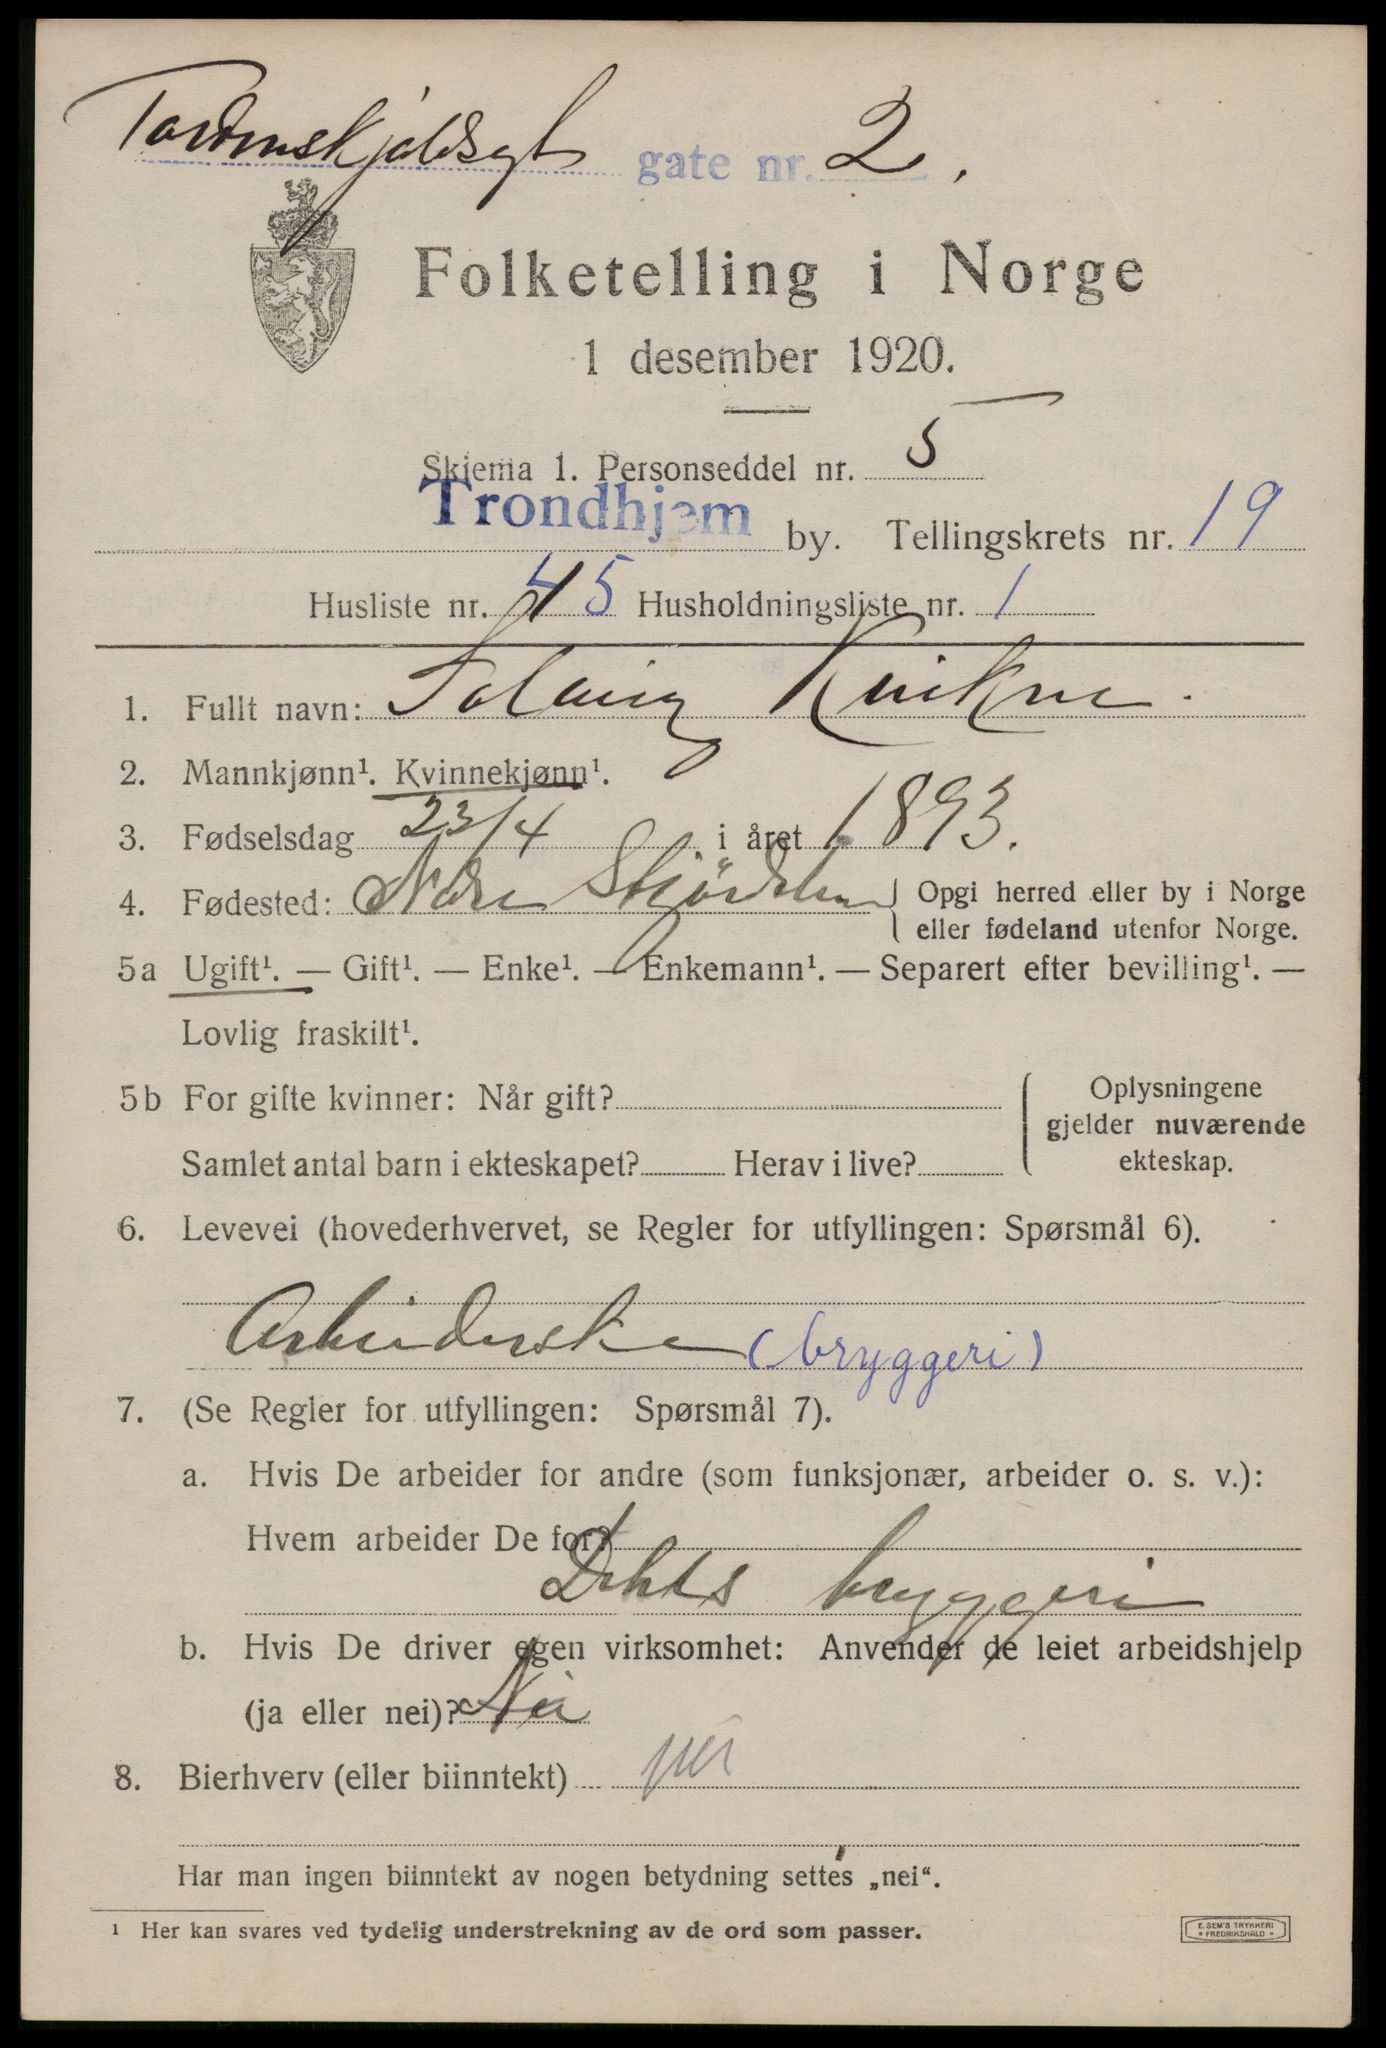 Tordenskjoldsgt gate nr. 2.
Folketelling i Norge
1 desember 1920.
Skjema 1. Personseddel nr. 5
Trondhjem by. Tellingskrets nr. 19
Husliste nr. 45 Husholdningsliste nr. 1
1. Fullt navn: Solveig Kvikne.
2. Mannkjønn¹. Kvinnekjønn¹.
3. Fødselsdag 23/4 i året 1893.
4. Fødested: Nore Stjørdalen { Opgi herred eller by i Norge
eller fødeland utenfor Norge.
5a Ugift¹. — Gift¹. — Enke¹. — Enkemann¹. — Separert efter bevilling¹. —
Lovlig fraskilt¹.
5b For gifte kvinner: Når gift? { Oplysningene
gjelder nuværende
Samlet antal barn i ekteskapet? Herav i live? ekteskap.
6. Levevei (hovederhvervet, se Regler for utfyllingen: Spørsmål 6).
Arbeiderske (bryggeri)
7. (Se Regler for utfyllingen: Spørsmål 7).
a. Hvis De arbeider for andre (som funksjonær, arbeider o. s. v.):
Hvem arbeider De for?
bryggeri
b. Hvis De driver egen virksomhet: Anvender de leiet arbeidshjelp
(ja eller nei)? Nei
8. Bierhverv (eller biinntekt) nei
Har man ingen biinntekt av nogen betydning settes „nei“.
¹ Her kan svares ved tydelig understrekning av de ord som passer.
E. SEM'S TRYKKERI
* FREDRIKSHALD *